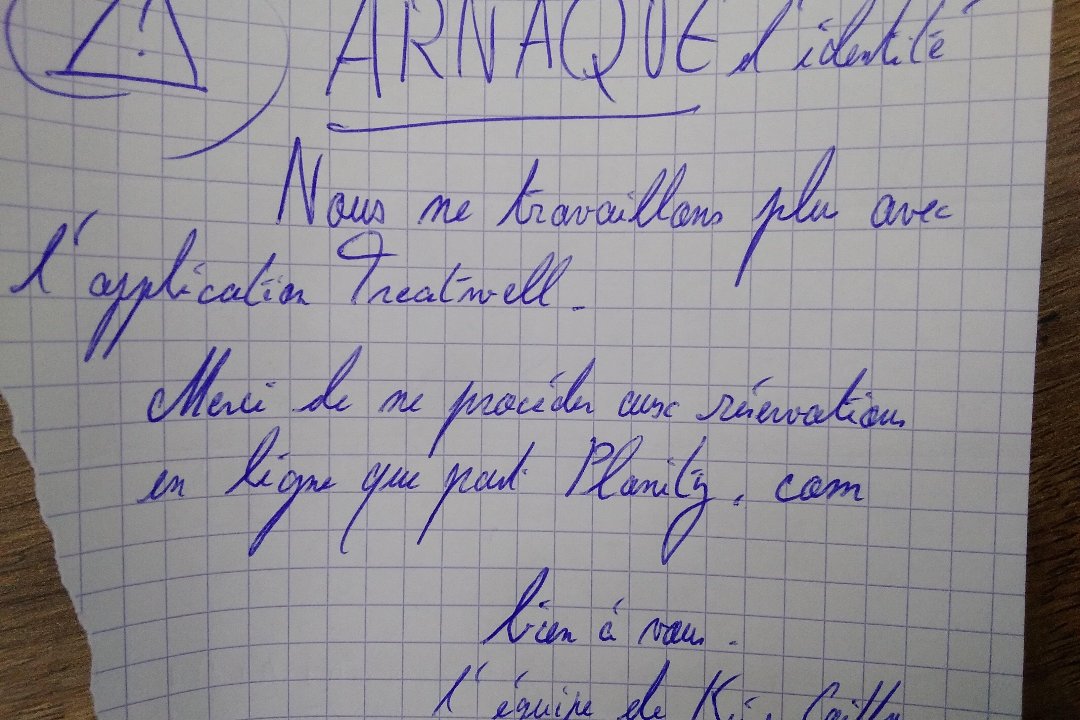 ! ARNAQUE d'identité
Nous ne travaillons plu avec
l'application Treatwell.
Merci de ne procéder aux réservations
en ligne que part Planity.com
bien à vous.
l'équipe de